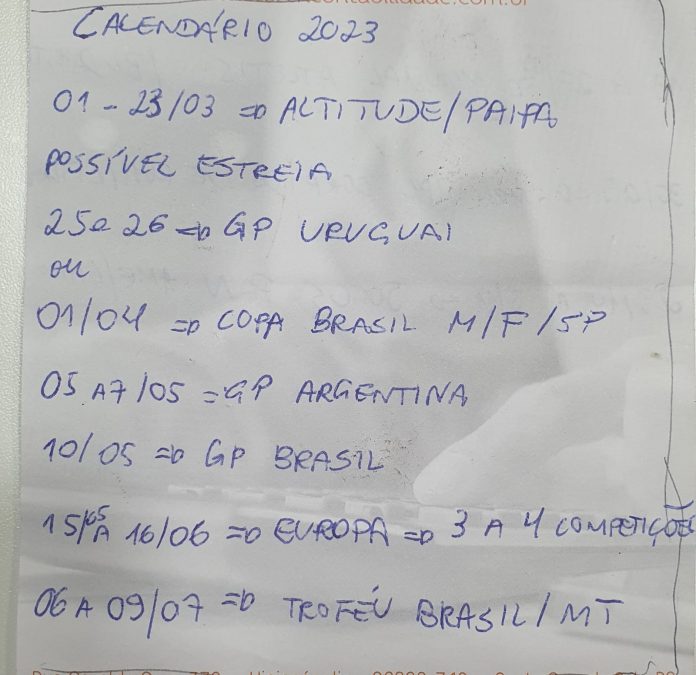 CALENDÁRIO 2023
01 - 23/03 => ALTITUDE/PAIPA
POSSÍVEL ESTREIA
25 e 26 => GP URUGUAI
ou
01/04 => COPA BRASIL M/F/SP
05 A 7/05 = GP ARGENTINA
10/05 => GP BRASIL
15/05 A 16/06 => EUROPA => 3 A 4 COMPETIÇÕES
06 A 09/07 => TROFÉU BRASIL/MT